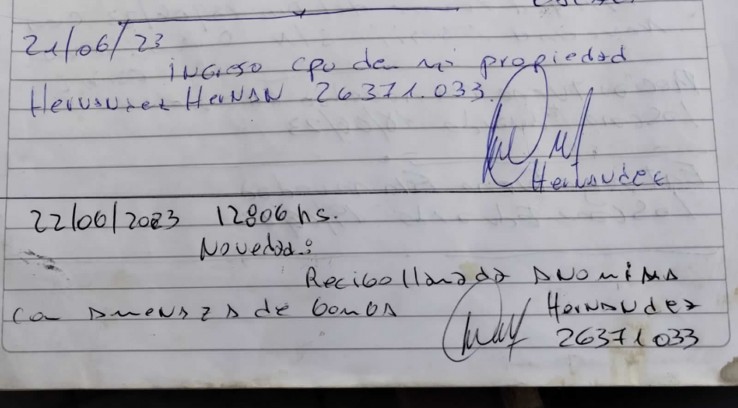 21/06/23
ingreso cpu de mi propiedad
Hernandez HerNAN 26371.033.
Hernandez
22/06/2023 12:06 hs.
Novedad:
Recibo llamada ANONIMA
con AmenAZA de bombA
Hernandez
26371033